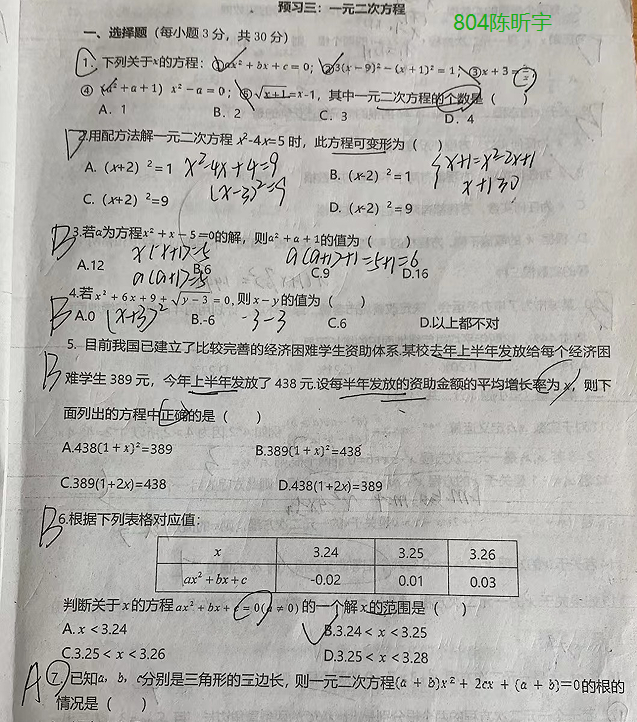 预习三：一元二次方程
804陈昕宇
一、选择题（每小题3分，共30分）
1．下列关于x的方程：①ax²+bx+c=0；②3(x-9)²-(x+1)²=1；③x+3=
④（a²+a+1）x²-a=0；⑤√x+1=x-1，其中一元二次方程的个数是（ ）
A．1 B．2 C．3 D．4
D 2.用配方法解一元二次方程x²-4x=5时，此方程可变形为（ ）
A.（x+2）²=1 x²-4x+4=9 B.（x-2）²=1 x+1=x²-2x+1
(x-3)²=9 x+1≥0
C.（x+2）²=9 D.（x-2）²=9
B 3.若a为方程x²+x-5=0的解，则a²+a+1的值为（ ）
x(x+1)=5 a(a+1)+1=5+1=6
A.12 B.6 C.9 D.16
a(a+1)=5
B 4.若x²+6x+9+√y-3=0,则x-y的值为（ ）
A.0 (x+3)² B.-6 -3-3 C.6 D.以上都不对
B 5．目前我国已建立了比较完善的经济困难学生资助体系.某校去年上半年发放给每个经济困
难学生389元，今年上半年发放了438元.设每半年发放的资助金额的平均增长率为x，则下
面列出的方程中正确的是（ ）
A.438(1+x)²=389 B.389(1+x)²=438
C.389(1+2x)=438 D.438(1+2x)=389
B 6.根据下列表格对应值：
x 3.24 3.25 3.26
ax²+bx+c -0.02 0.01 0.03
判断关于x的方程ax²+bx+c=0(a≠0)的一个解x的范围是（ ）
A.x<3.24 B.3.24<x<3.25
C.3.25<x<3.26 D.3.25<x<3.28
A 7.已知a，b，c分别是三角形的三边长，则一元二次方程(a+b)x²+2cx+(a+b)=0的根的
情况是（ ）